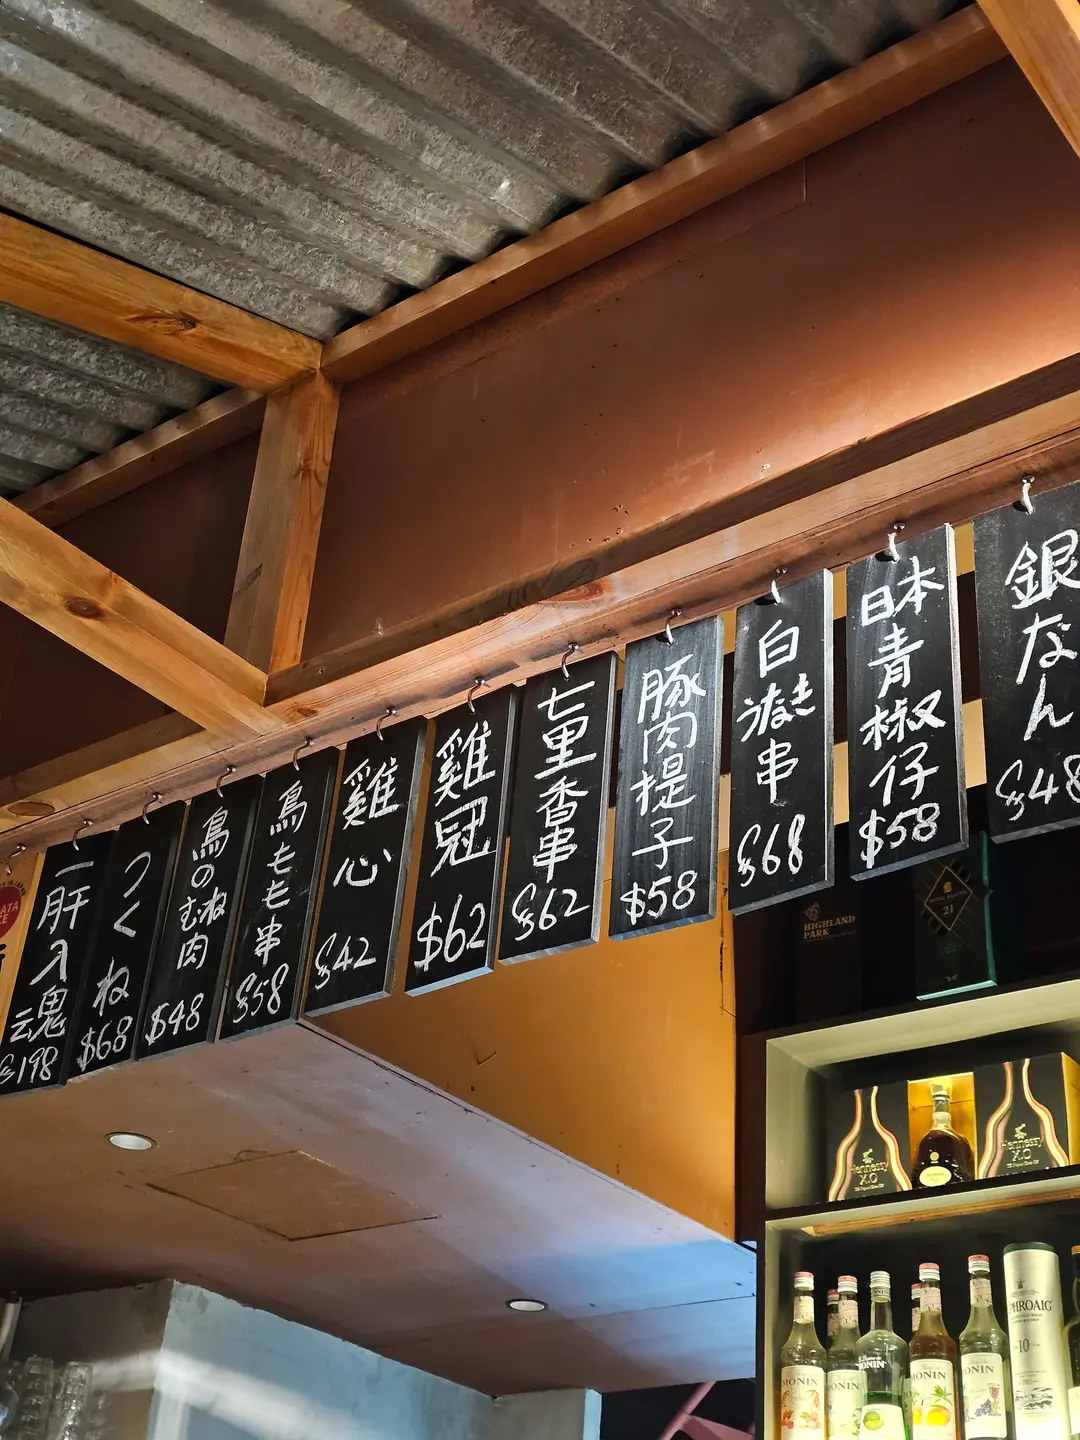 一肝入魂
$198
つくね
$68
鳥のむね肉
$48
鳥もも串
$58
雞心
$42
雞冠
$62
七里香串
$62
豚肉提子
$58
白滝き串
$68
日本青椒仔
$58
銀なん
$48
HIGHLAND
PARK
21
Hennessy
X.O
Hennessy
X.O
MONIN
MONIN
MONIN
MONIN
MONIN
PHROAIG
10